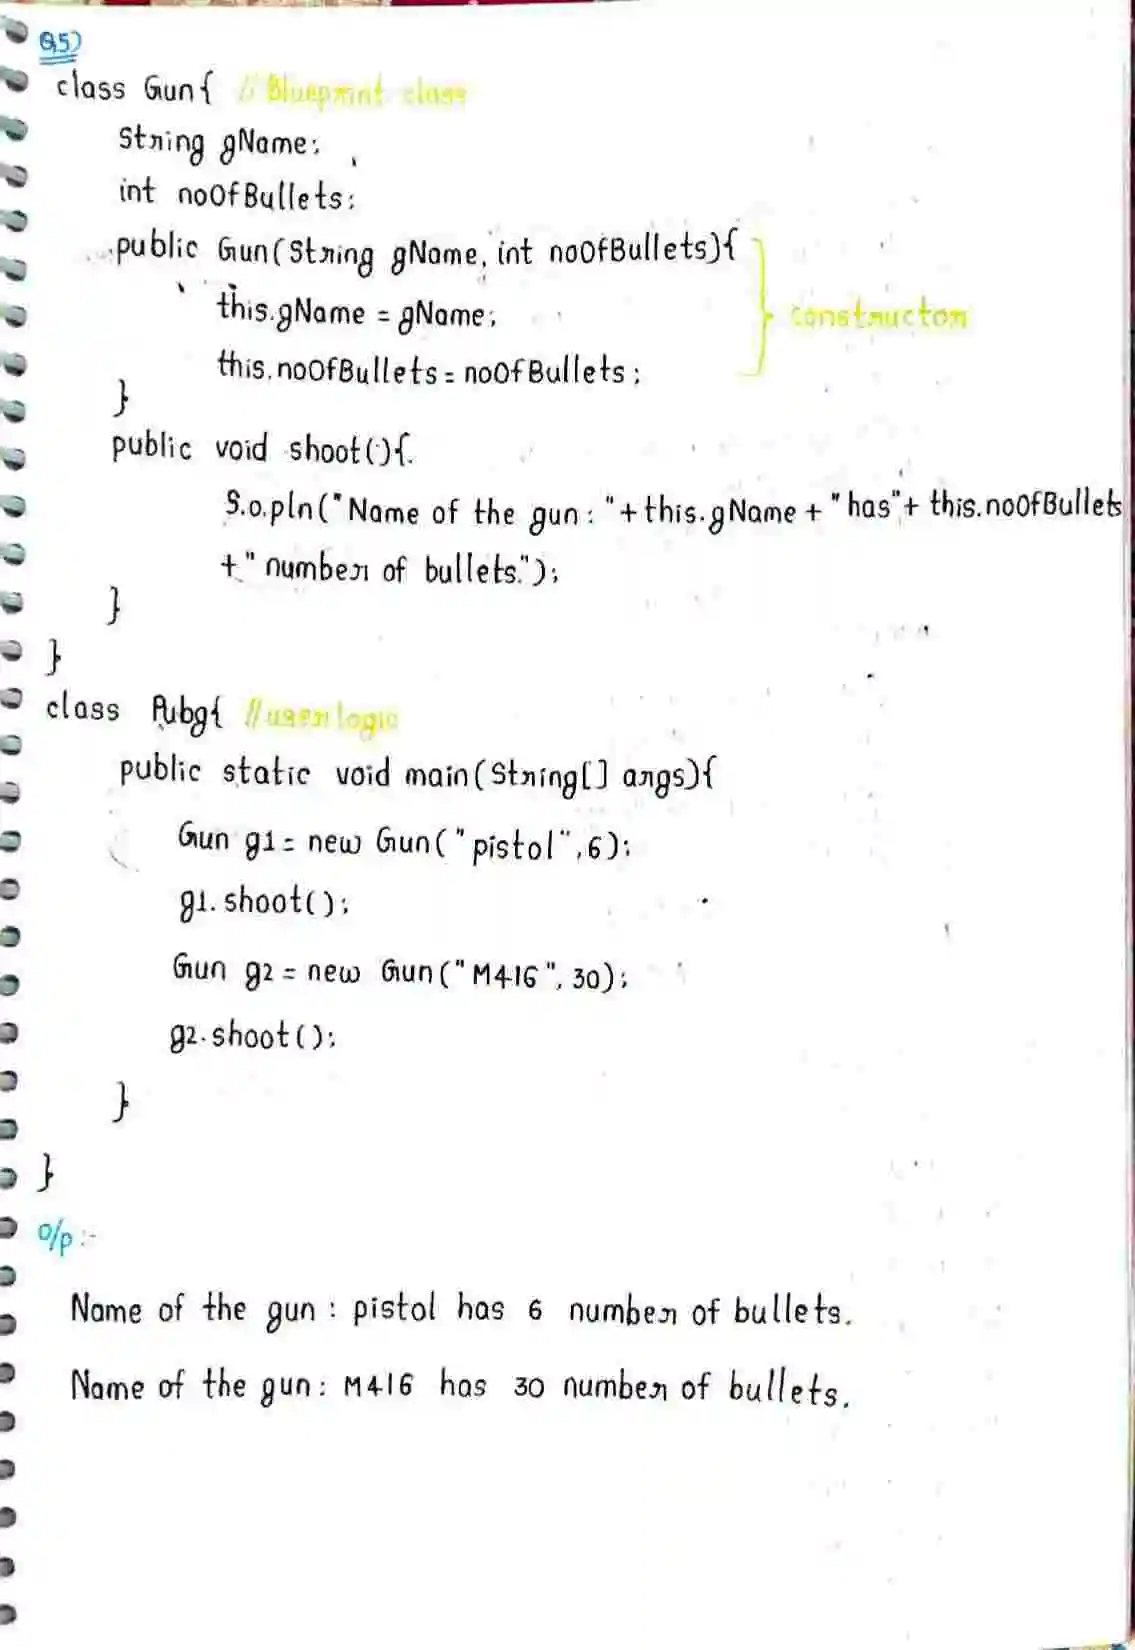 Q5)
class Gun{ // Blueprint class
String gName;
int noOfBullets;
public Gun(String gName, int noOfBullets){
this.gName = gName;
this.noOfBullets = noOfBullets;
} constructor
}
public void shoot(){
S.o.pln("Name of the gun : "+this.gName + "has"+ this.noOfBullets
+" number of bullets.");
}
}
class Pubg{ //user logic
public static void main(String[] args){
Gun g1 = new Gun("pistol",6);
g1.shoot();
Gun g2 = new Gun("M416", 30);
g2.shoot();
}
}
O/p :-
Name of the gun : pistol has 6 number of bullets.
Name of the gun : M416 has 30 number of bullets.